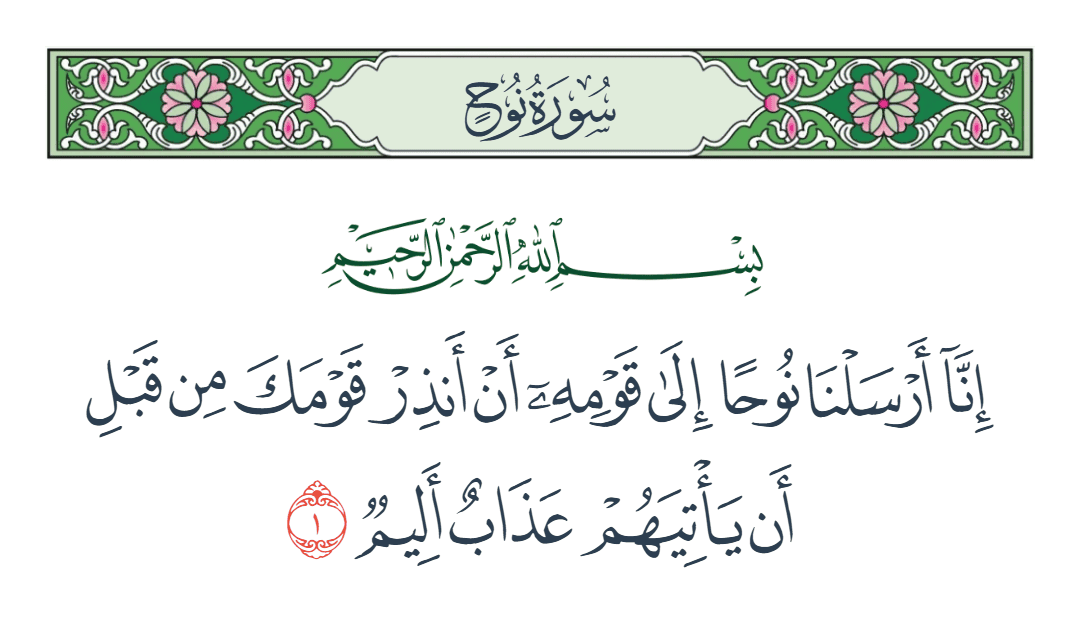 سُورَةُ نُوحٍ
بِسْمِ ٱللَّهِ ٱلرَّحْمَٰنِ ٱلرَّحِيمِ
إِنَّآ أَرْسَلْنَا نُوحًا إِلَىٰ قَوْمِهِۦٓ أَنْ أَنذِرْ قَوْمَكَ مِن قَبْلِ
أَن يَأْتِيَهُمْ عَذَابٌ أَلِيمٌ ١